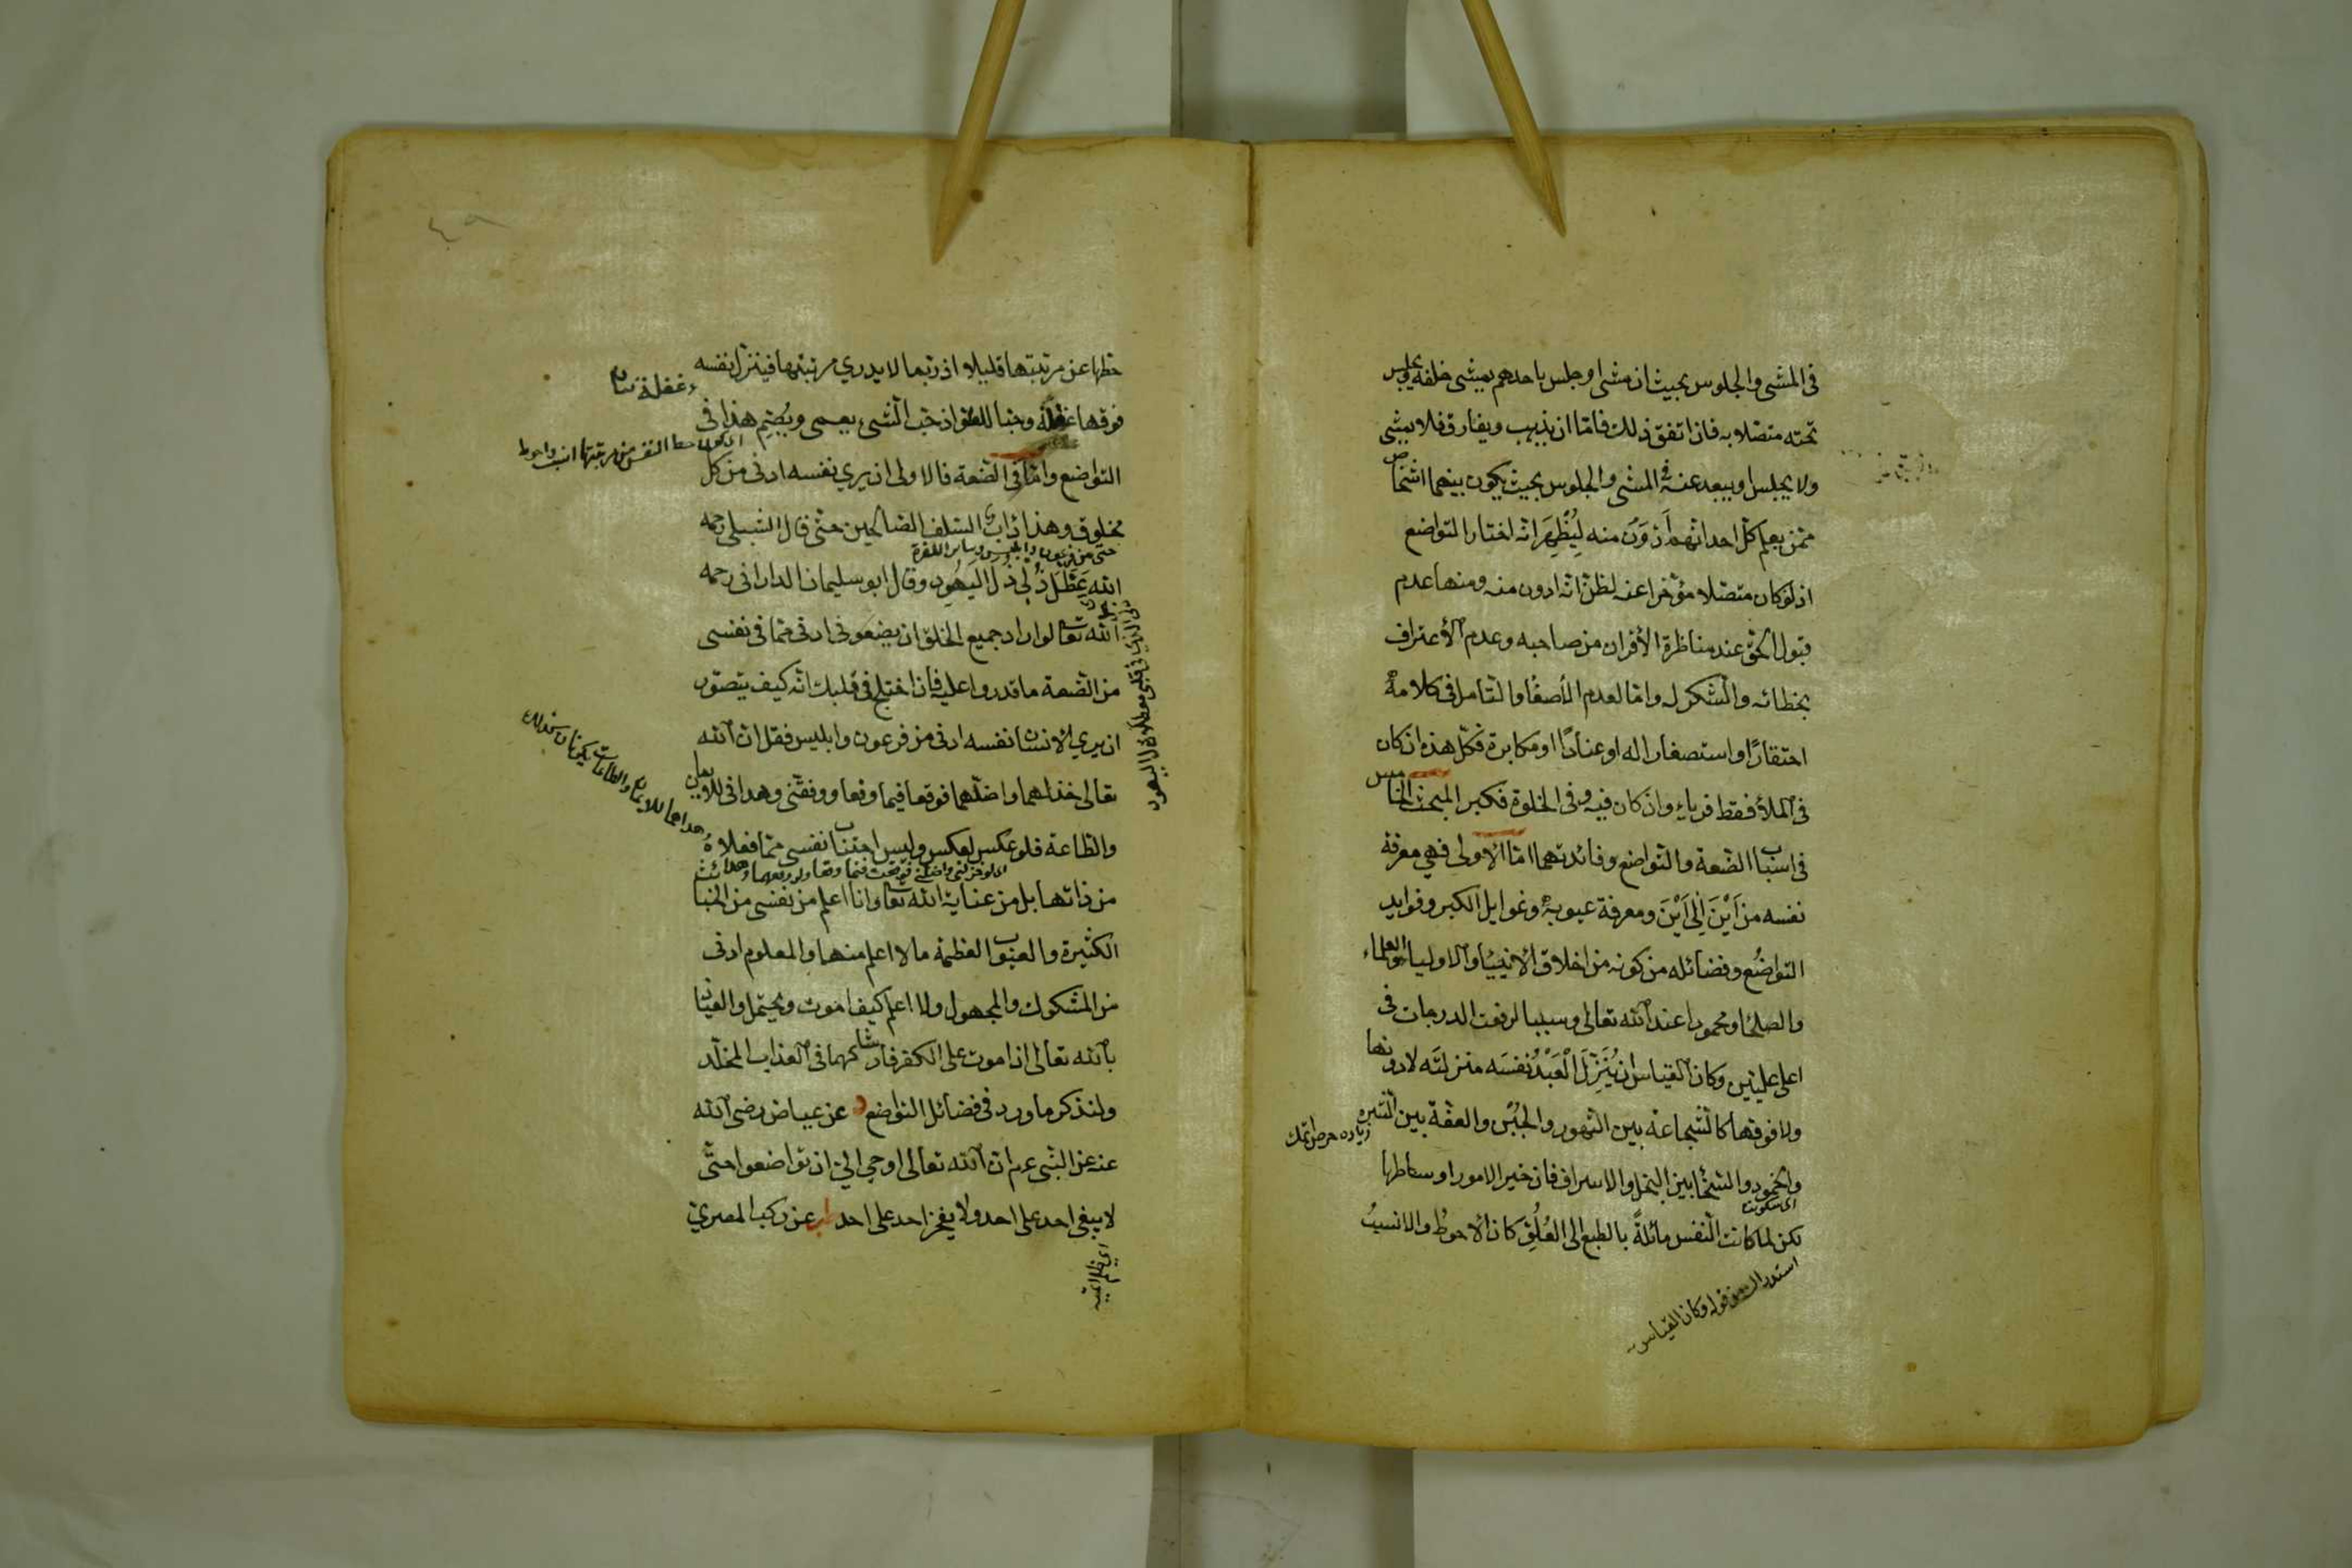 فى المشى والجلوس بحيث ان مشى او جلس باحدهم يمشى خلفه ويجلس
تحته متصلا به فاذا اتفق ذلك فامّا ان يذهب ويفارق فلا يمشى
ولا يجلس او يبعد عنه فى المشى والجلوس بحيث يكون بينهما اشخاص
ممن يعلم كلّ احد انّهم أَدْوَنُ منه لِيُظْهِرَ انّه اختار التواضع
اذ لو كان متصلا مؤخرا عنه لظنّ انّه ادون منه ومنها عدم
قبول الحقّ عند مناظرة الأقران من صاحبه وعدم الأعتراف
بخطائه والشكر له وامّا لعدم الأصغا والتأمل فى كلامه
احتقارًا واستصغارا له او عنادًا او مكابرة فكلّ هذه ان كان
فى الملأ فقط فرياء وان كان فيه وفى الخلوة فكبر المبحث الخامس
فى اسباب الضّعة والتواضع وفائدتهما امّا الأولى فهى معرفة
نفسه من أَيْنَ إِلَى أَيْنَ ومعرفة عيوبه وغوايل الكبر وفوايد
التواضُع وفضائله من كونه من اخلاق الأنبياء والاولياء والعلماء
والصلحا ومحمودا عند الله تعالى وسببا لرفعت الدرجات فى
اعلى عليّين وكان القياس ان يُنَزِّلَ الْعَبْدُ نَفْسَه منزلته لا دونها
ولا فوقها كالشجاعة بين التهور والجُبْن والعفّة بين الشره
زيادة حرص
والخمود والسّخا بين البخل والاسراف فان خير الامور اوساطها
اى سكونت
لكن لما كانت النفس مائلةً بالطبع الى العُلُوِّ كان الأحوطُ والانسبُ
استدراك من قوله وكان القياس
٤٩
حطها عن مرتبتها قليلا اذ ربّما لا يدري مرتبتها فينزل نفسه
فوقها غفلة وحبا للعلو اذ حبّ الشىء يعمى ويُصِمّ هذا فى
التواضع وامّا فى الضّعة فالاولى ان يرى نفسه ادنى من كلّ
مخلوق وهذا دأب السّلف الصّالحين حتّى قال الشبلى رحمه
حتى من فرعون وابليس وسائر الكفرة
الله عَطَّلَ ذُلِّى ذُلَّ الْيَهُودِ وقال ابو سليمان الدارانى رحمه
الله تعالى لو اراد جميع الخلق ان يضعونى ادنى ممّا فى نفسى
من الضّعة ما قدروا عليه فان اختلج فى قلبك انّه كيف يتصوّر
ان يري الانسان نفسه ادنى من فرعون وابليس فقل ان الله
تعالى خذلهما واضلّهما فوقعا فيما وقعا ووفقنى وهدانى للايمان
والطاعة فلو عكس لعكس وليس اجتناب نفسى ممّا فعلاهُ
من ذاتها بل من عناية الله تعالى وانا اعلم من نفسى من الخبائث
الكثيرة والعيوب العظيمة ما لا اعلم منهما والمعلوم ادنى
من المشكوك والمجهول ولا اعلم كيف اموت ويحتمل والعياذ
بالله تعالى ان اموت على الكفر فاشاركهما فى العذاب المخلّد
ولنذكر ما ورد فى فضائل التواضع د عن عياض رضى الله
عنه عن النبى عم ان الله تعالى اوحى الىّ ان تواضعوا حتّى
لا يبغى احد على احد ولا يفخر احد على احد عن ركب المصريّ